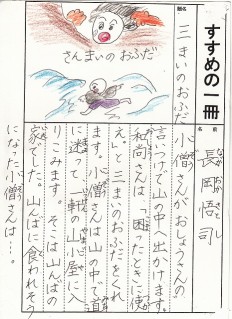 すすめの一冊
題名
三まいのおふだ
さんまいのおふだ
名前
ながおかさとし
長岡悟司
小僧さんがおしょうさんの
言いつけで山の中へ出かけます。
和尚さんは、「困ったときに使
えし」と三まいのおふだをくれ
ます。小僧さんは山の中で道
に迷って一軒の山小屋に入
りこみます。そこは山んばの
家でした。山んばに食われそう
になった小僧さんは…。